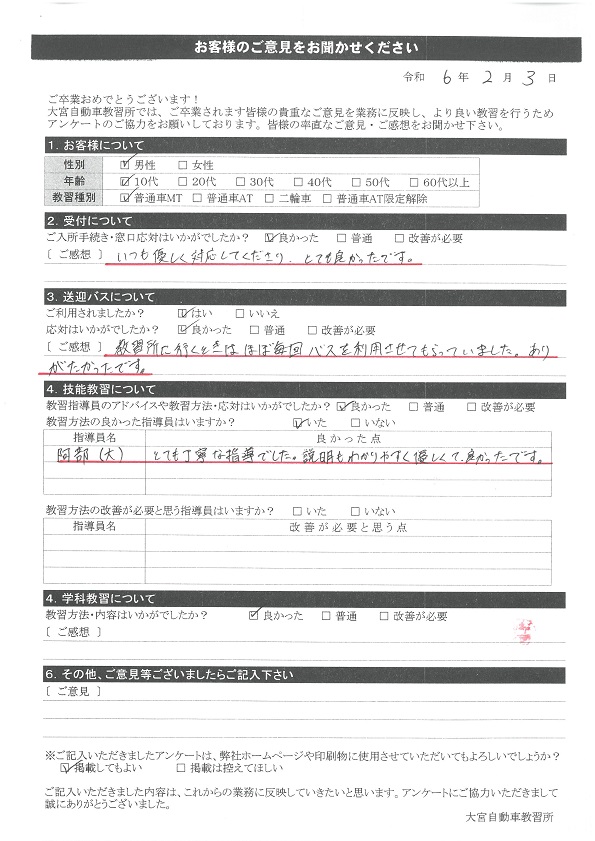 お客様のご意見をお聞かせください
令和 6 年 2 月 3 日
ご卒業おめでとうございます！
大宮自動車教習所では、ご卒業されます皆様の貴重なご意見を業務に反映し、より良い教習を行うため
アンケートのご協力をお願いしております。皆様の率直なご意見・ご感想をお聞かせ下さい。
1. お客様について
性別 ☑男性 □女性
年齢 ☑10代 □20代 □30代 □40代 □50代 □60代以上
教習種別 ☑普通車MT □普通車AT □二輪車 □普通車AT限定解除
2. 受付について
ご入所手続き・窓口応対はいかがでしたか？ ☑良かった □普通 □改善が必要
[ ご感想 ] いつも優しく対応してくださり、とても良かったです。
3. 送迎バスについて
ご利用されましたか？ ☑はい □いいえ
応対はいかがでしたか？ ☑良かった □普通 □改善が必要
[ ご感想 ] 教習所に行くときはほぼ毎回バスを利用させてもらっていました。あり
がたかったです。
4. 技能教習について
教習指導員のアドバイスや教習方法・応対はいかがでしたか？ ☑良かった □普通 □改善が必要
教習方法の良かった指導員はいますか？ ☑いた □いない
指導員名 良かった点
阿部(大) とても丁寧な指導でした。説明もわかりやすく優しくて、良かったです。
教習方法の改善が必要と思う指導員はいますか？ □いた □いない
指導員名 改善が必要と思う点
4. 学科教習について
教習方法・内容はいかがでしたか？ ☑良かった □普通 □改善が必要
[ ご感想 ]
6. その他、ご意見等ございましたらご記入下さい
[ ご意見 ]
※ご記入いただきましたアンケートは、弊社ホームページや印刷物に使用させていただいてもよろしいでしょうか？
☑掲載してもよい □掲載は控えてほしい
ご記入いただきました内容は、これからの業務に反映していきたいと思います。アンケートにご協力いただきまして
誠にありがとうございました。
大宮自動車教習所